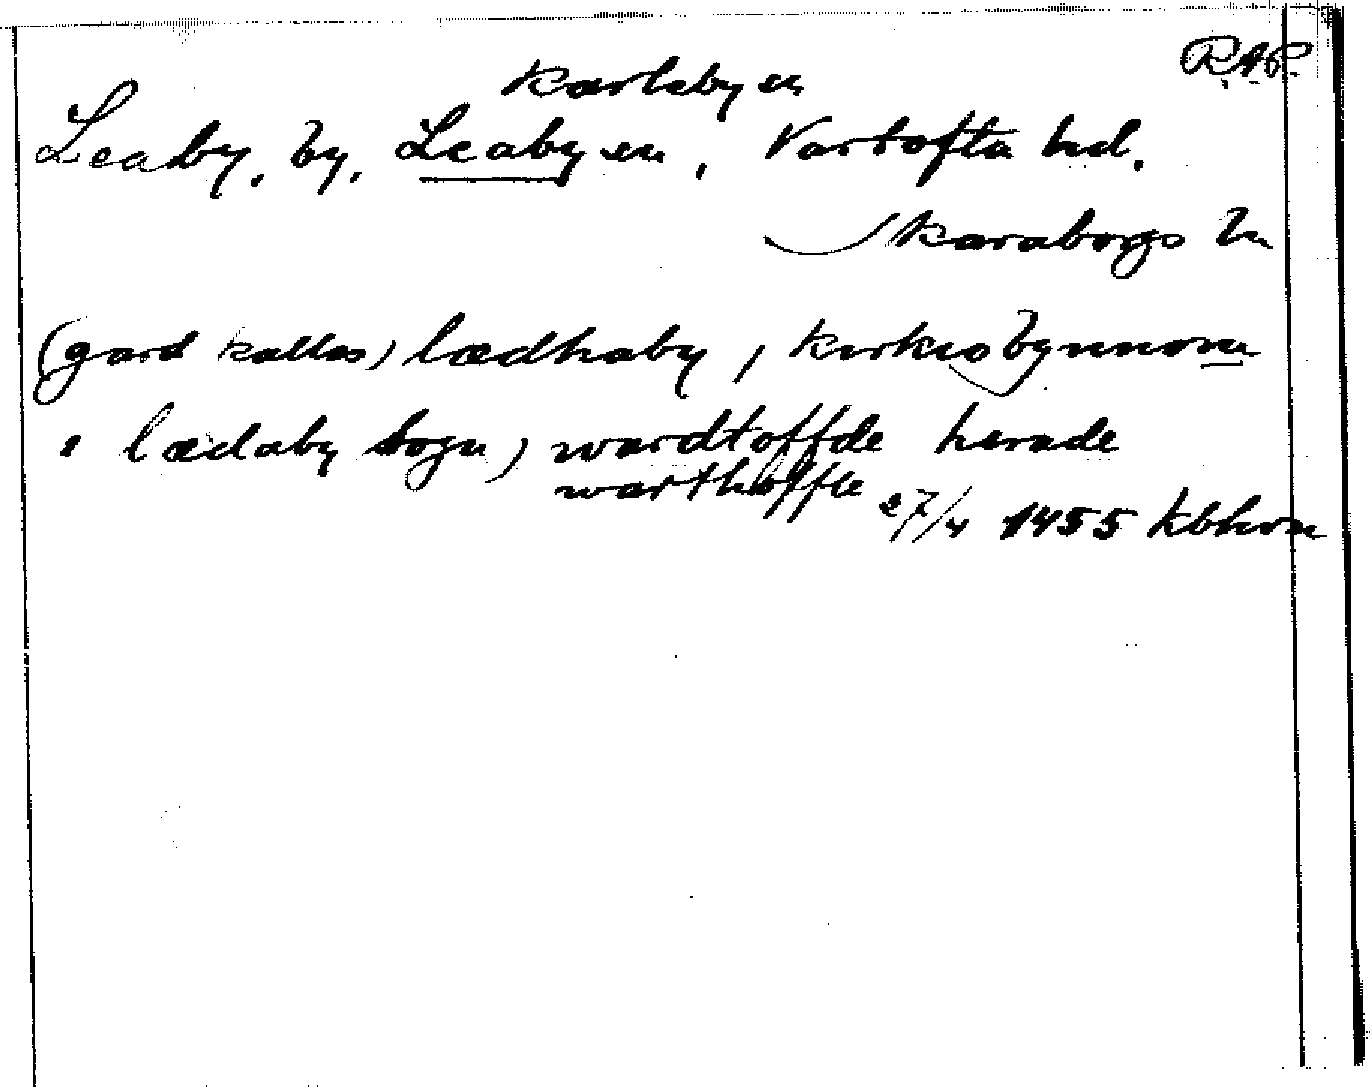 R.A.P.
Karleby sn
Leaby, by, Leaby sn, Vartofta hd.
Skaraborgs ln
(gard kallas) lædhaby, kirkiobynnom
i lædaby sogn) wardtoffde herade
warthoffte 27/4 1455 Kbhvn